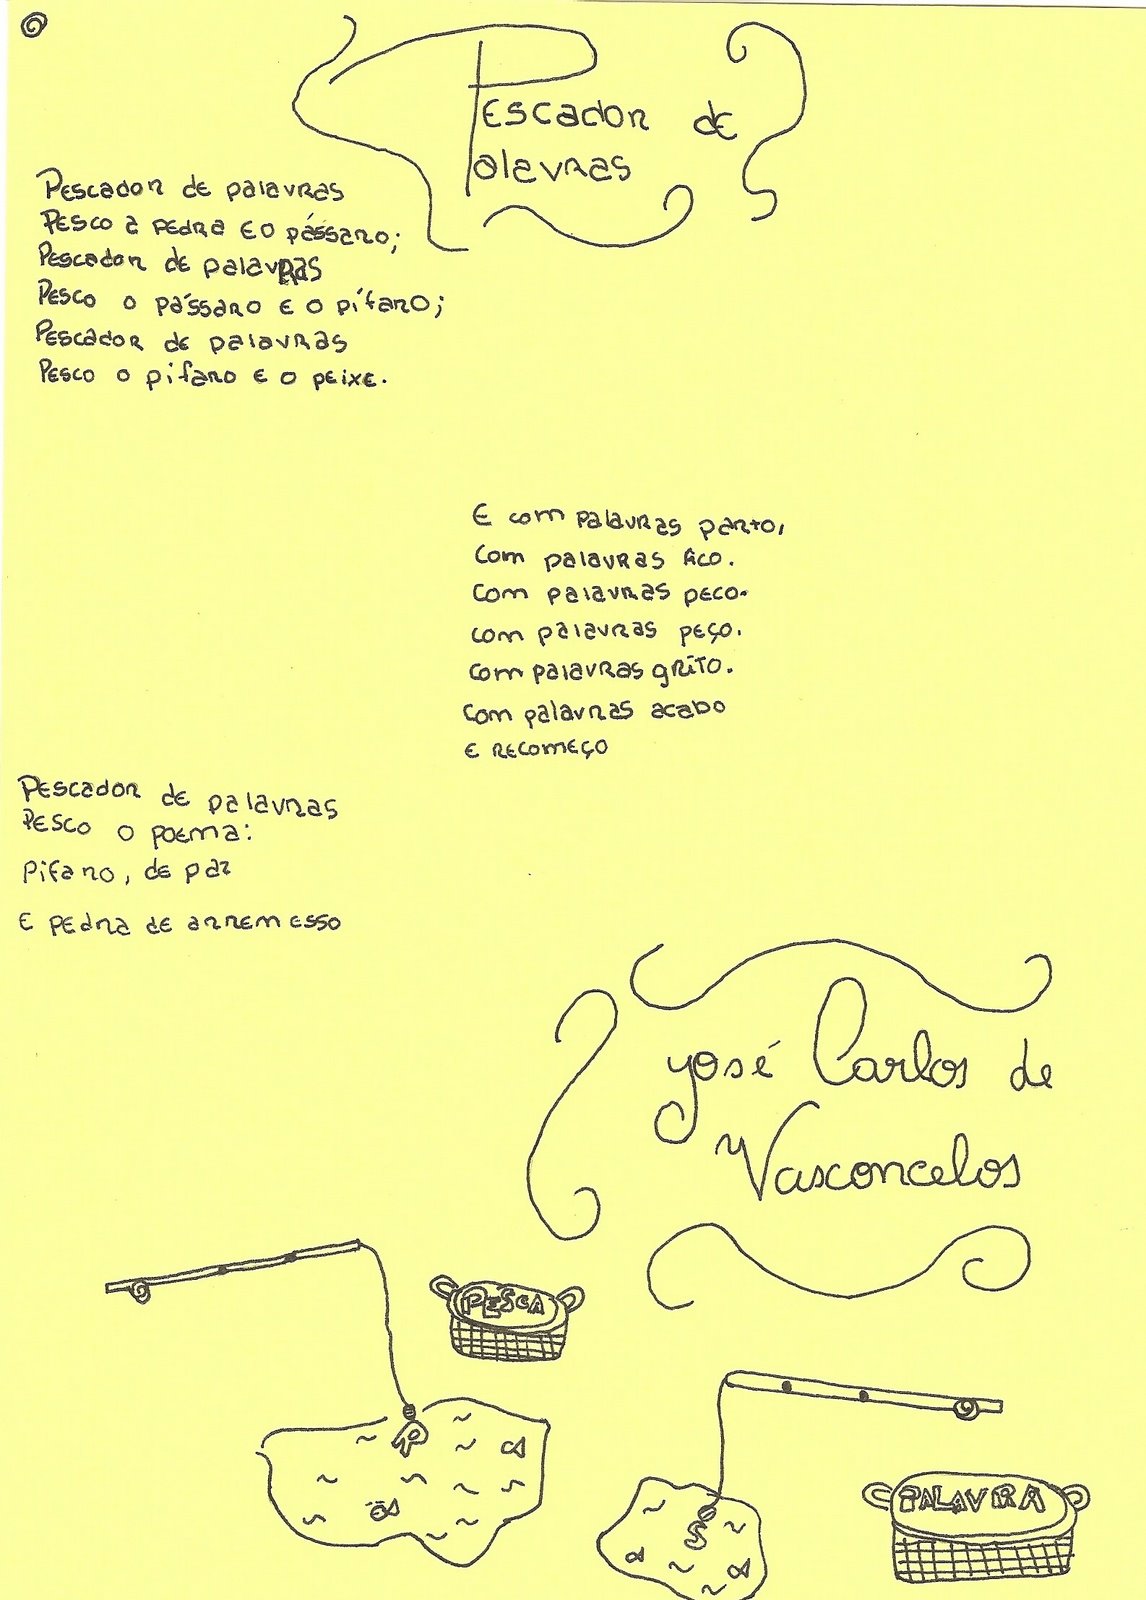 Pescador de
Palavras
Pescador de palavras
Pesco a pedra e o pássaro;
Pescador de palavras
Pesco o pássaro e o pífaro;
Pescador de palavras
Pesco o pífaro e o peixe.
E com palavras parto,
Com palavras fico.
Com palavras peco.
com palavras peço.
com palavras grito.
com palavras acabo
e recomeço
Pescador de palavras
Pesco o poema:
Pifaro, de paz
E pedra de arremesso
José Carlos de
Vasconcelos
PESCA
P
S
PALAVRA